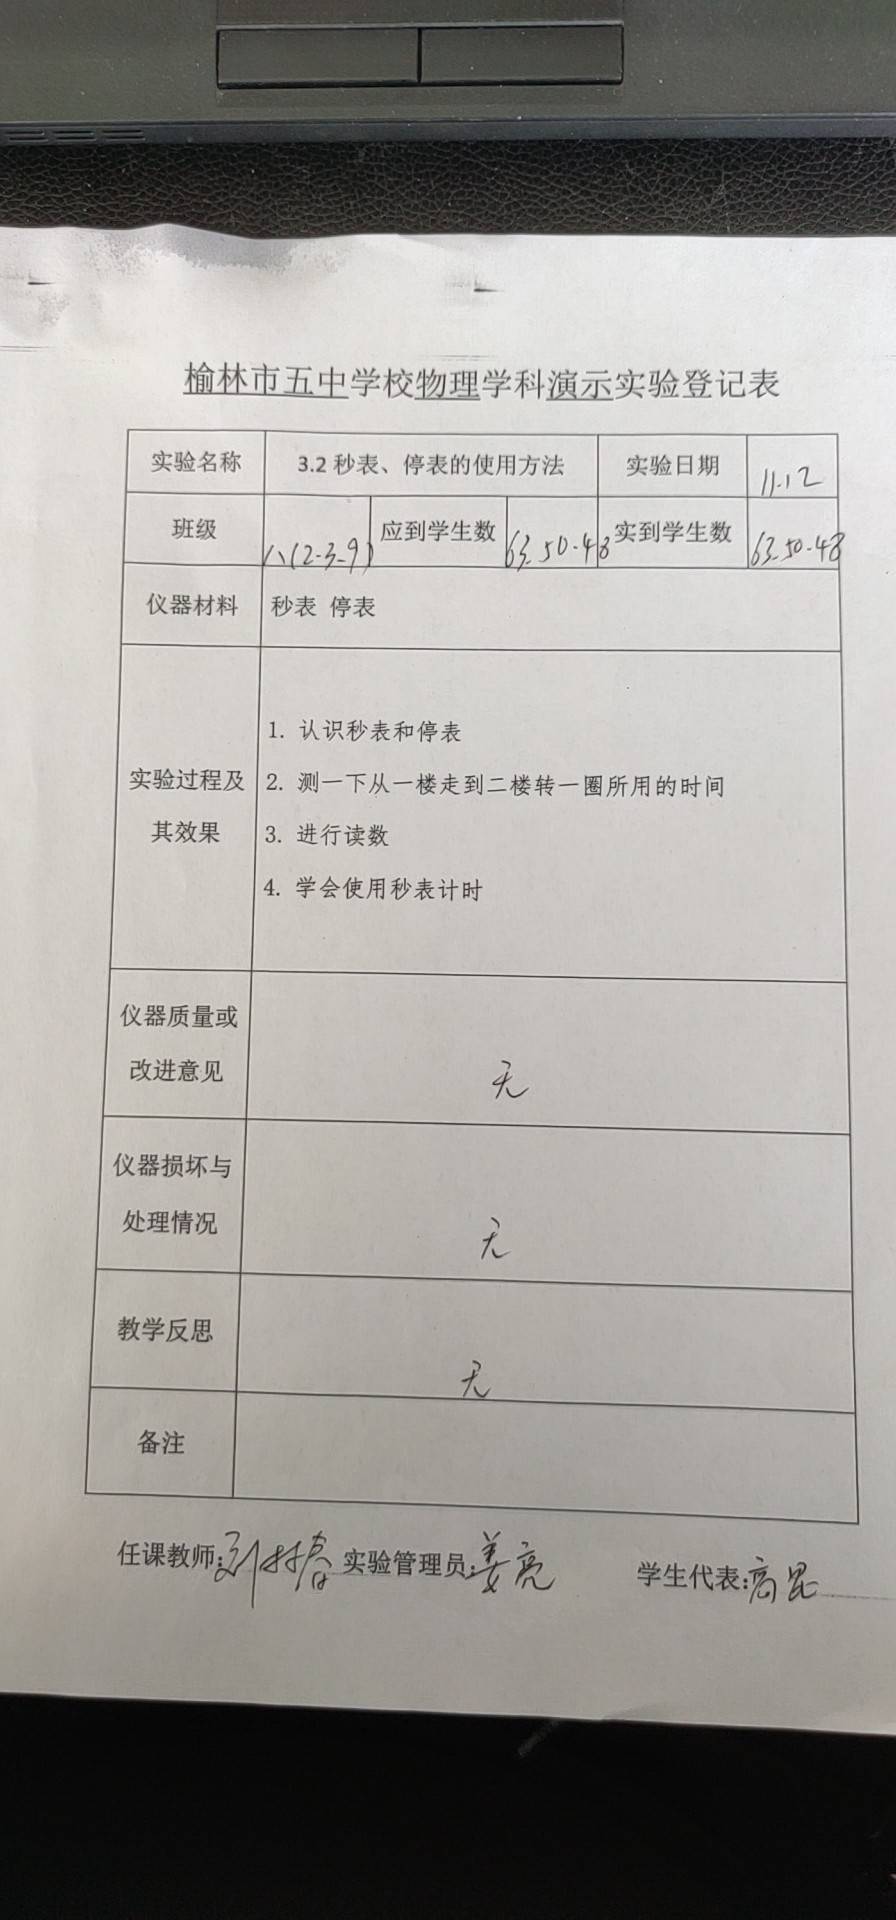 榆林市五中学校物理学科演示实验登记表
实验名称 3.2 秒表、停表的使用方法 实验日期 11.12
班级 八(2.3.9) 应到学生数 63.50.48 实到学生数 63.50.48
仪器材料 秒表 停表
实验过程及其效果
1. 认识秒表和停表
2. 测一下从一楼走到二楼转一圈所用的时间
3. 进行读数
4. 学会使用秒表计时
仪器质量或改进意见 无
仪器损坏与处理情况 无
教学反思 无
备注
任课教师: 刘 春 实验管理员: 姜亮 学生代表: 高昆